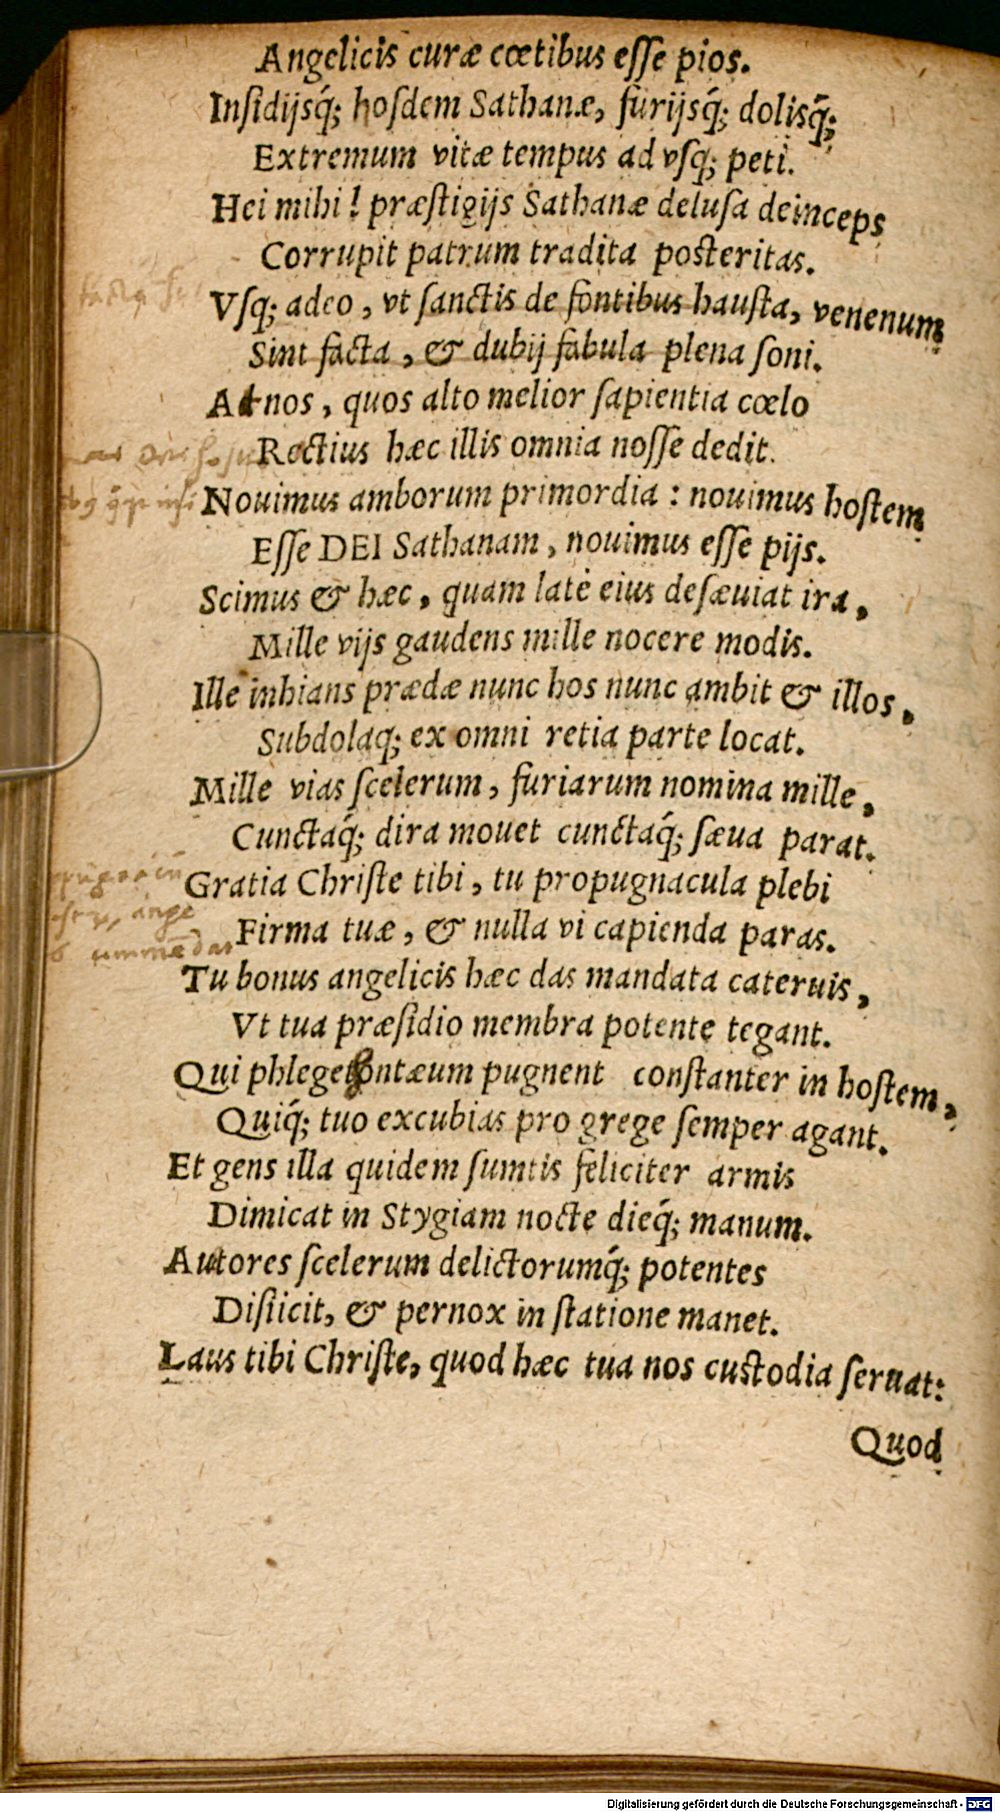 Angelicis curæ cœtibus esse pios.
Insidijsq́; hosdem Sathanæ, furijsq́; dolisq́;
Extremum vitæ tempus ad vsq; peti.
Hei mihi! præstigijs Sathanæ delusa deinceps
Corrupit patrum tradita posteritas.
Vsq; adeo, vt sanctis de fontibus hausta, venenum
Sint facta, & dubij fabula plena soni.
At nos, quos alto melior sapientia cœlo
Rectius hæc illis omnia nosse dedit.
Nouimus amborum primordia: nouimus hostem
Esse DEI Sathanam, nouimus esse pijs.
Scimus & hæc, quam latè eius desæuiat ira,
Mille vijs gaudens mille nocere modis.
Ille inhians prædæ nunc hos nunc ambit & illos,
Subdolaq; ex omni retia parte locat.
Mille vias scelerum, furiarum nomina mille,
Cunctaq́; dira mouet cunctaq́; sæua parat.
Gratia Christe tibi, tu propugnacula plebi
Firma tuæ, & nulla vi capienda paras.
Tu bonus angelicis hæc das mandata cateruis,
Vt tua præsidio membra potente tegant.
Qui phlegethontæum pugnent constanter in hostem,
Quiq́; tuo excubias pro grege semper agant.
Et gens illa quidem sumtis feliciter armis
Dimicat in Stygiam nocte dieq́; manum.
Autores scelerum delictorumq́; potentes
Disiicit, & pernox in statione manet.
Laus tibi Christe, quod hæc tua nos custodia seruat:
Quod
Digitalisierung gefördert durch die Deutsche Forschungsgemeinschaft - DFG